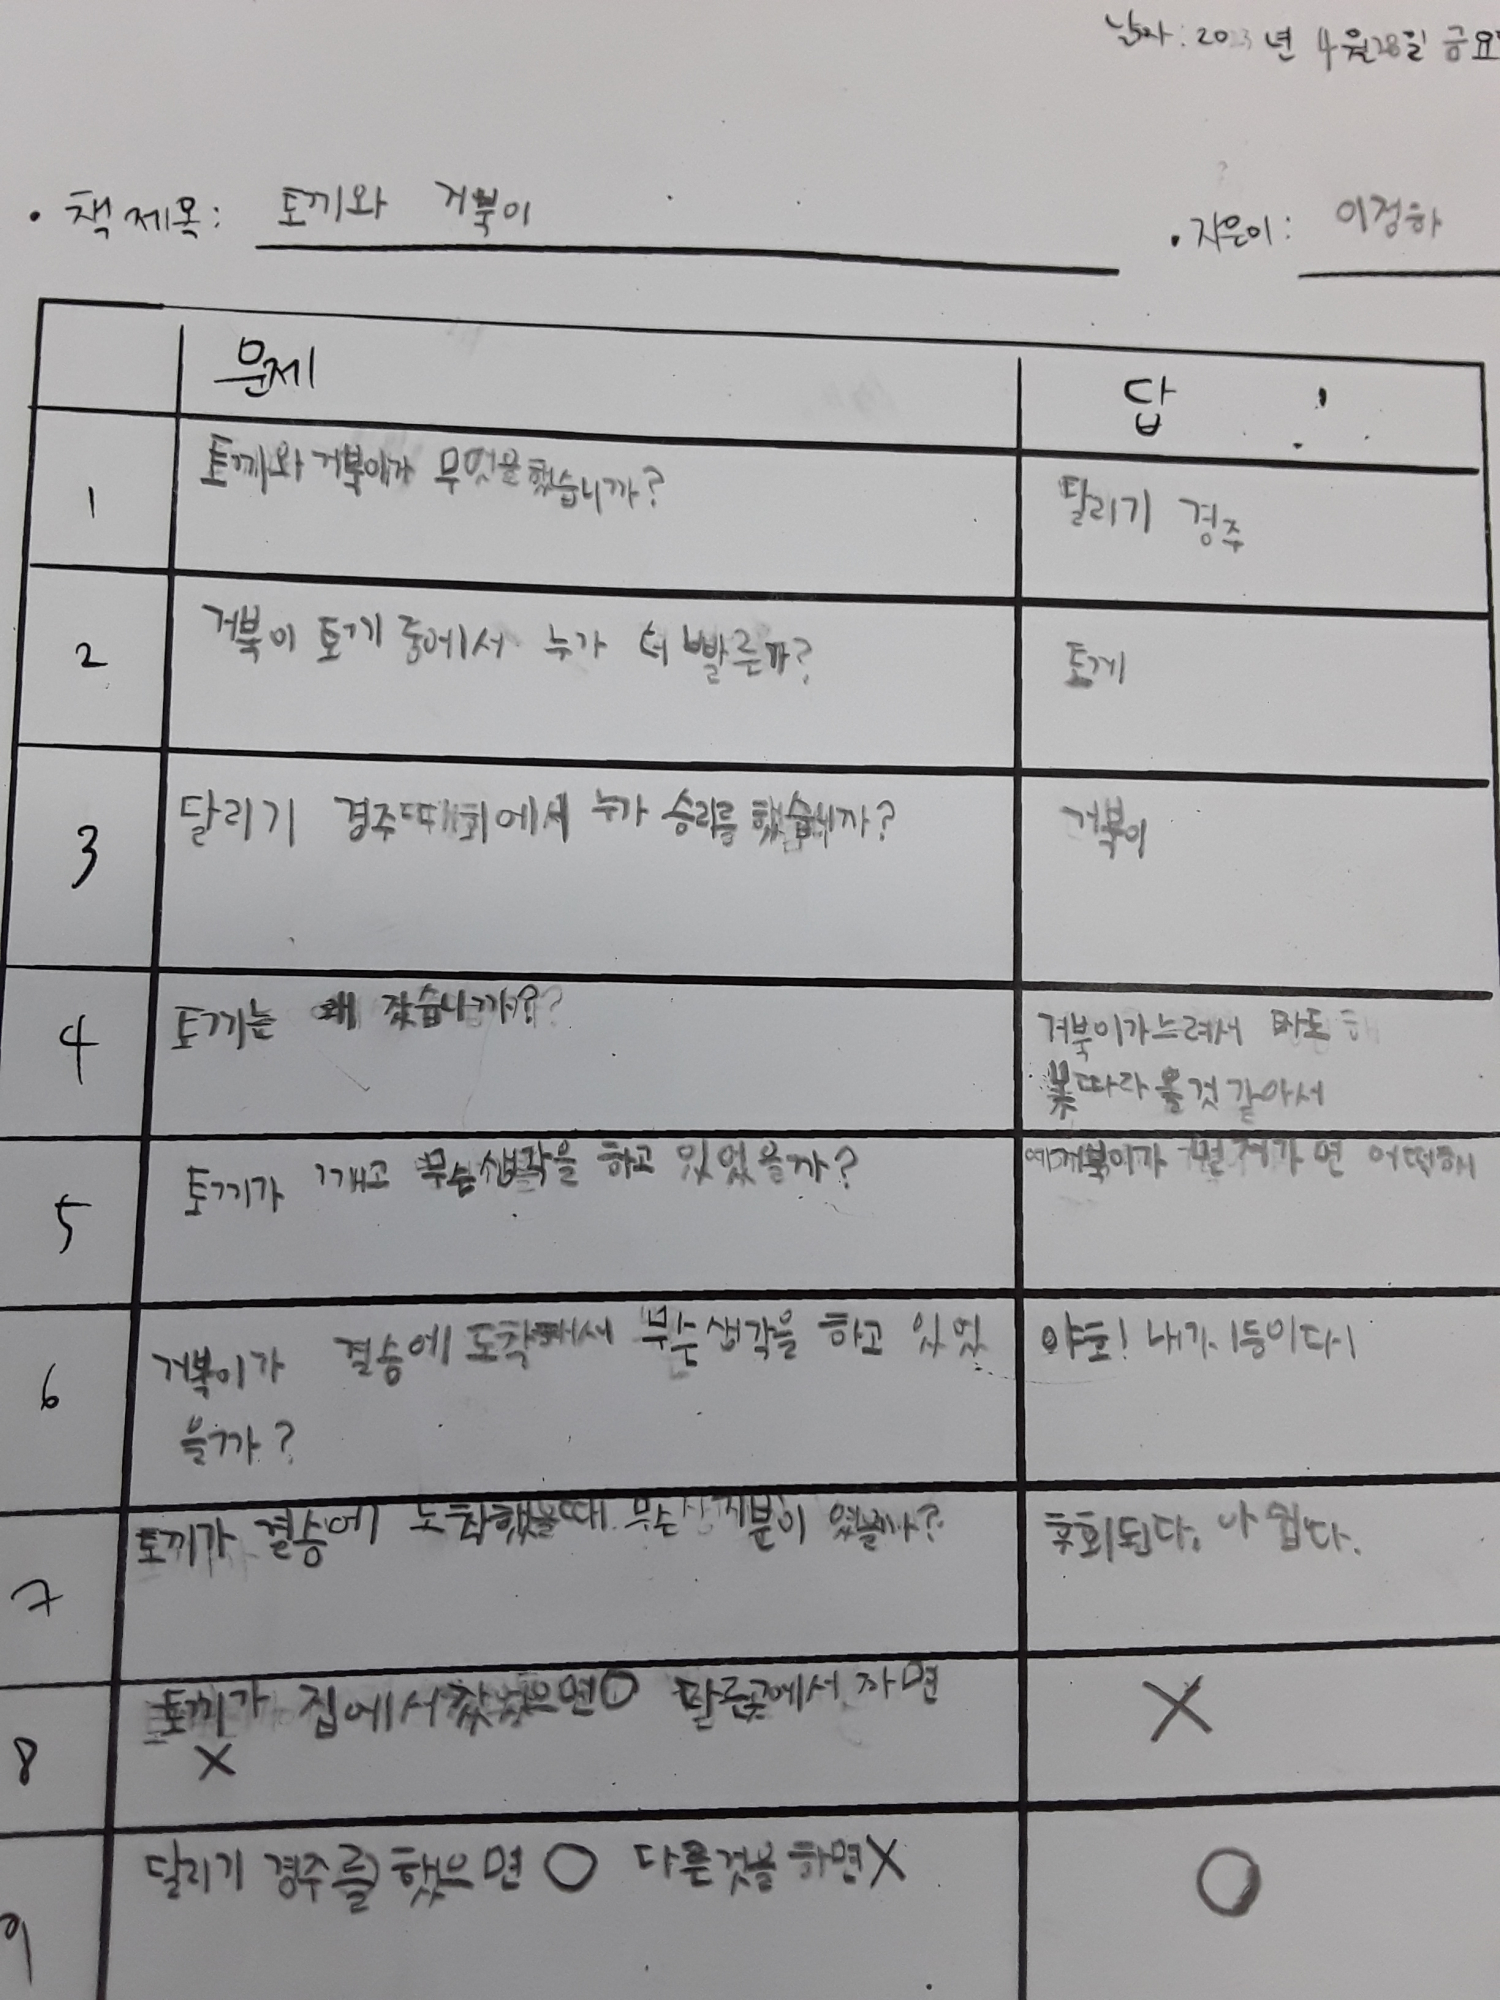 날짜: 2023년 4월 28일 금요
• 책 제목: 토끼와 거북이
• 지은이: 이정하
문제 답
1 토끼와 거북이가 무엇을 했습니까? 달리기 경주
2 거북이 토끼 중에서 누가 더 빠른까? 토끼
3 달리기 경주 대회에서 누가 승리를 했습니까? 거북이
4 토끼는 왜 잤습니까? 거북이가 느려서
못 따라 올것 같아서
5 토끼가 깨고 무슨 생각을 하고 있었을까? 거북이가 먼저가면
6 거북이가 결승에 도착해서 무슨 생각을 하고 있었 야호! 내가 1등이다!
을까?
7 토끼가 결승에 도착했을때 무슨 기분이 었을까? 후회된다. 아 쉽다.
8 토끼가 집에서 잤었으면 O 다른곳에서 자면 X
X
9 달리기 경주를 했으면 O 다른것을 하면 X O